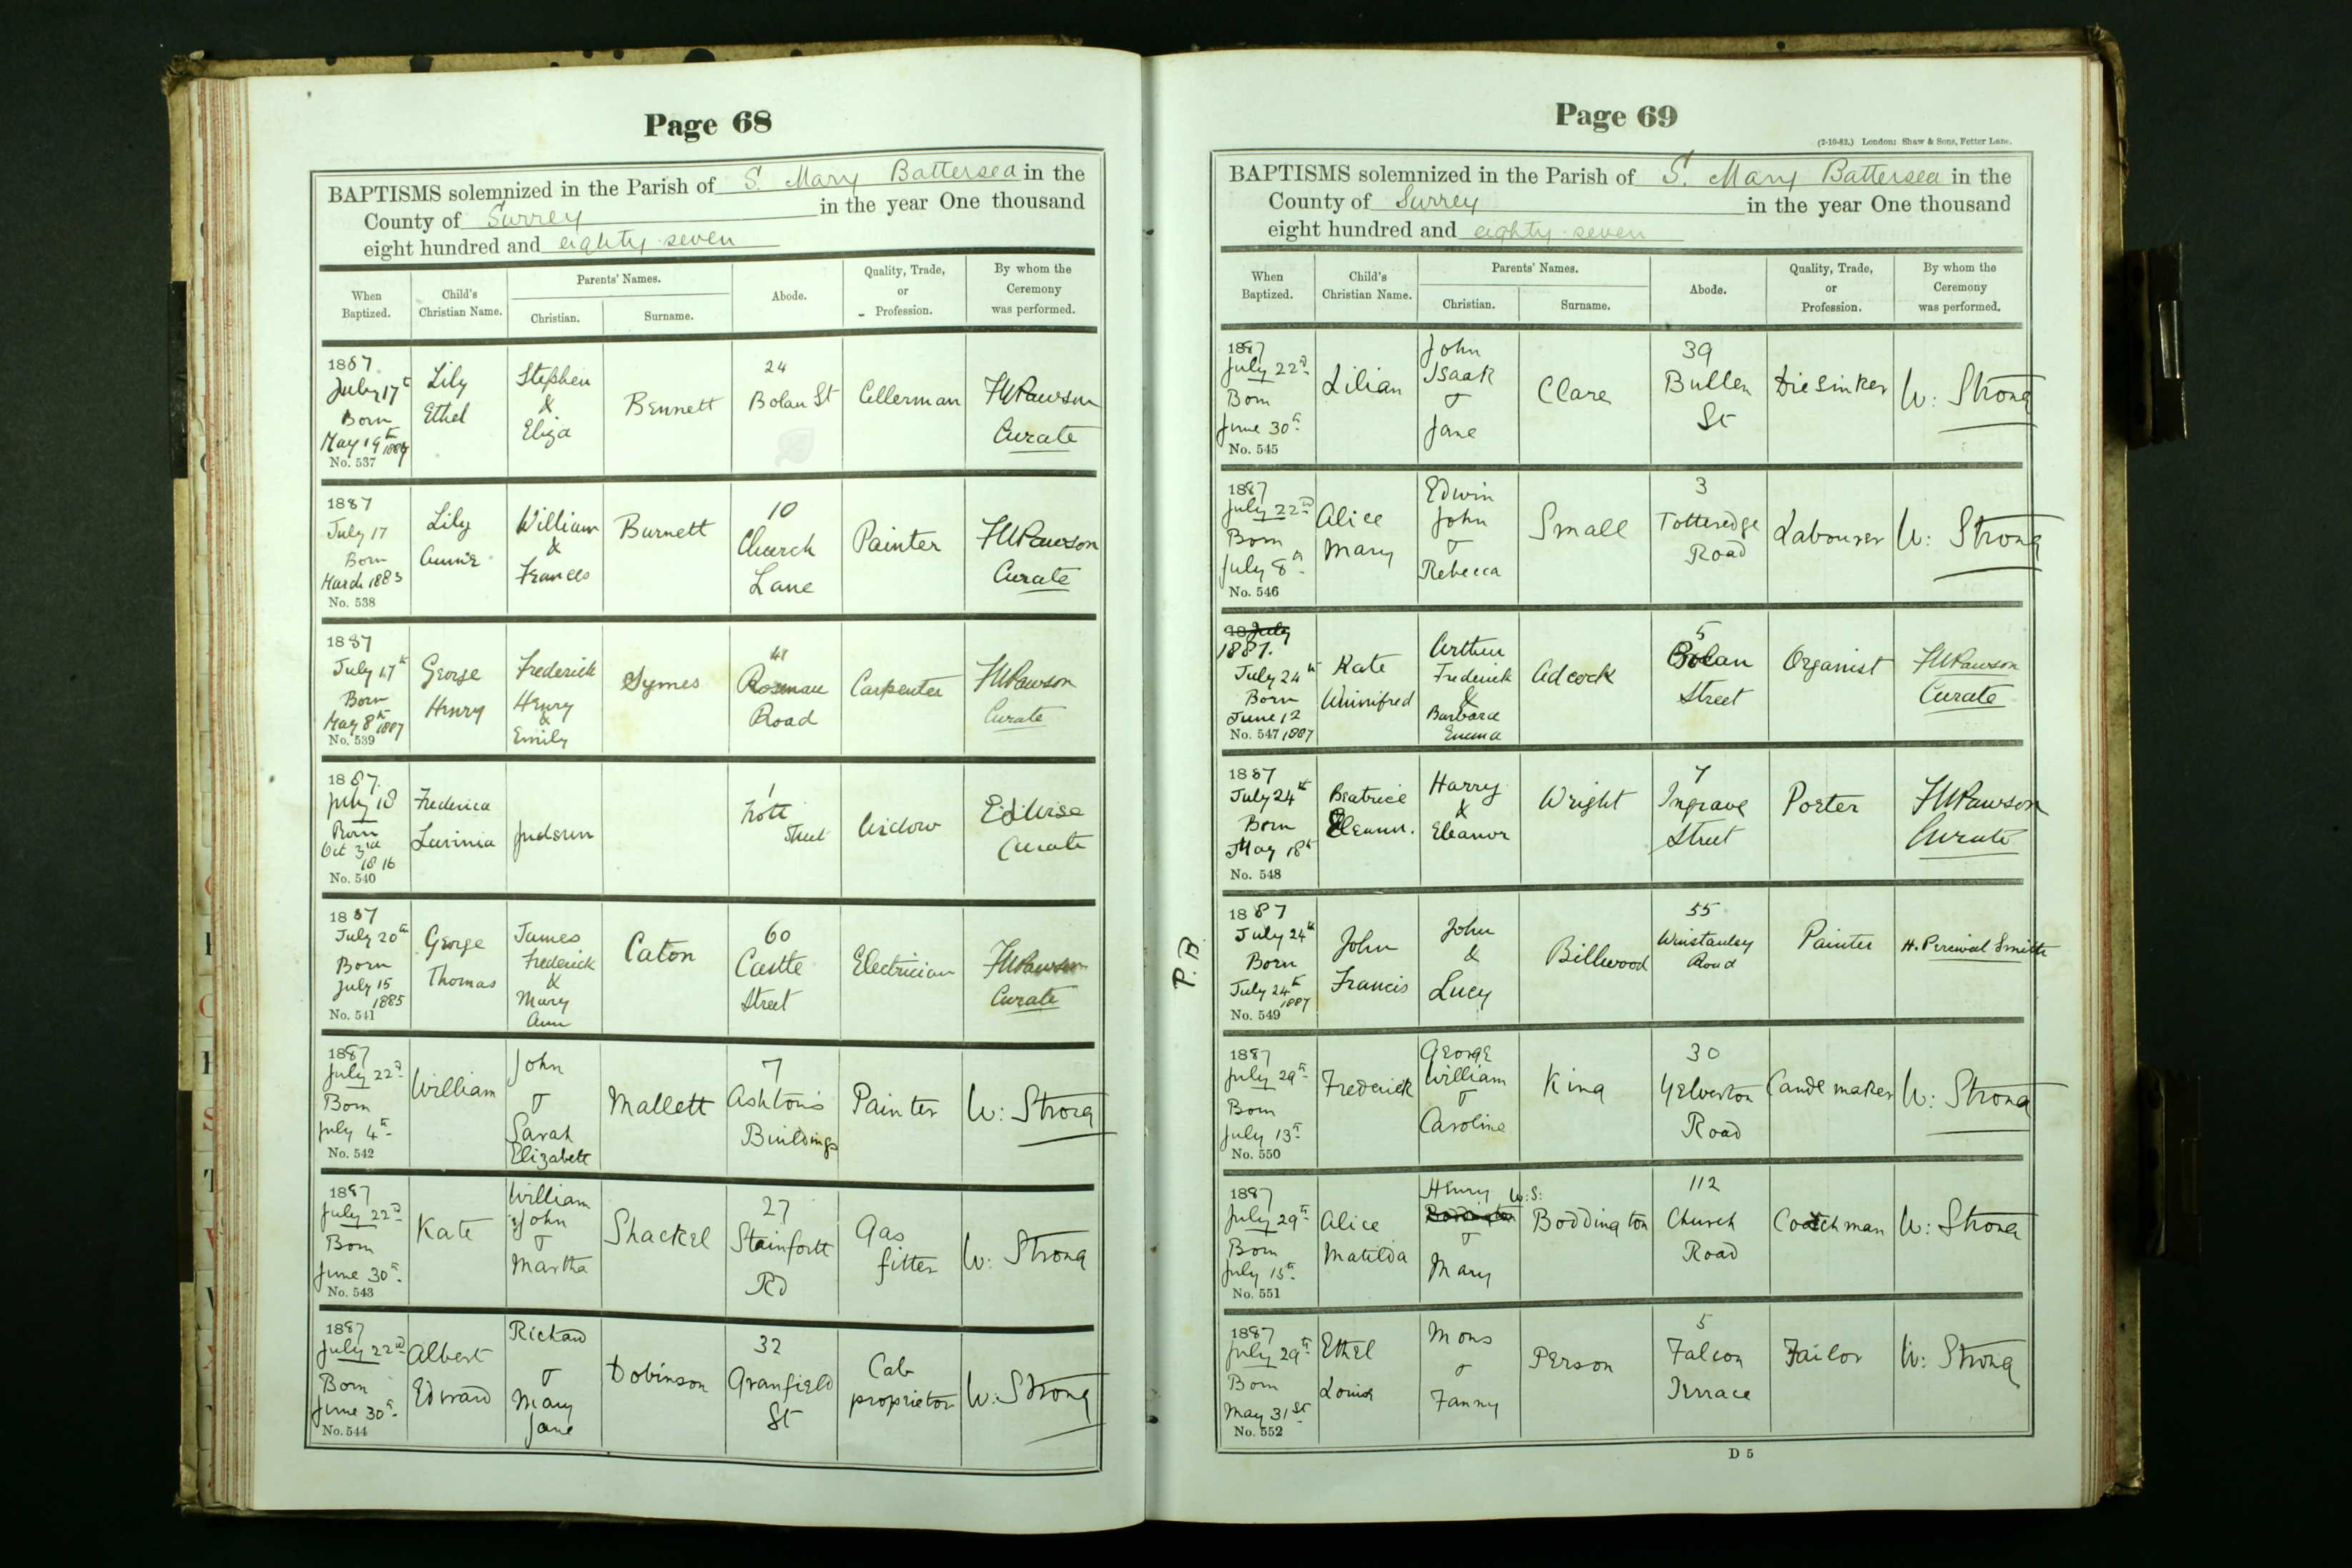 Page 68
BAPTISMS solemnized in the Parish of S. Mary Battersea in the
County of Surrey in the year One thousand
eight hundred and eighty-seven
When Baptized. Child's Christian Name. Parents' Names. Christian. Surname. Abode. Quality, Trade, or Profession. By whom the Ceremony was performed.
1887
July 17th
Born
May 19th 1887
No. 537
Lily
Ethel
Stephen
&
Eliza
Bennett
24
Bolan St
Cellerman
Pawson
Curate
1887
July 17
Born
March 1883
No. 538
Lily
Annie
William
&
Frances
Burnett
10
Church
Lane
Painter
Pawson
Curate
1887
July 17th
Born
May 8th 1887
No. 539
George
Henry
Frederick
Henry
&
Emily
Symes
41
Rosenau
Road
Carpenter
Pawson
Curate
1887.
July 18
Born
Oct 3rd
1816
No. 540
Frederica
Lavinia
Judson
1
Trott
Street
Widow
Curate
1887
July 20th
Born
July 15
1885
No. 541
George
Thomas
James
Frederick
&
Mary
Ann
Caton
60
Castle
Street
Electrician
Pawson
Curate
1887
July 22nd
Born
July 4th
No. 542
William
John
&
Sarah
Elizabeth
Mallett
7
Ashton's
Buildings
Painter
W: Strong
1887
July 22nd
Born
June 30th
No. 543
Kate
William
John
&
Martha
Shackel
27
Stainforth
Rd
Gas
fitter
W: Strong
1887
July 22nd
Born
June 30th
No. 544
Albert
Edward
Richard
&
Mary
Jane
Dobinson
32
Granfield
St
Cab
proprietor
W: Strong
Page 69
(2-10-82.) London: Shaw & Sons, Fetter Lane.
BAPTISMS solemnized in the Parish of S. Mary Battersea in the
County of Surrey in the year One thousand
eight hundred and eighty-seven
When Baptized. Child's Christian Name. Parents' Names. Christian. Surname. Abode. Quality, Trade, or Profession. By whom the Ceremony was performed.
1887
July 22nd
Born
June 30th
No. 545
Lilian
John
Isaak
&
Jane
Clare
39
Bullen
St
Die Sinker
W: Strong
1887
July 22nd
Born
July 8th
No. 546
Alice
Mary
Edwin
John
&
Rebecca
Small
3
Totteredge
Road
Labourer
W: Strong
1887.
July 24th
Born
June 12
No. 547 1887
Kate
Winnifred
Arthur
Frederick
&
Barbara
Emma
Adcock
5
Bolan
Street
Organist
Pawson
Curate
1887
July 24th
Born
May 18th
No. 548
Beatrice
Eleanor.
Harry
&
Eleanor
Wright
7
Ingrave
Street
Porter
Pawson
Curate
P.B.
1887
July 24th
Born
July 24th
1887
No. 549
John
Francis
John
&
Lucy
Billwood
55
Winstanley
Road
Painter
H. Percival Smith
1887
July 29th
Born
July 13th
No. 550
Frederick
George
William
&
Caroline
King
30
Yelverton
Road
Candle maker
W: Strong
1887
July 29th
Born
July 15th
No. 551
Alice
Matilda
Henry W: S:
&
Mary
Boddington
112
Church
Road
Coachman
W: Strong
1887
July 29th
Born
May 31st
No. 552
Ethel
Louisa
Mons
&
Fanny
Person
5
Falcon
Terrace
Tailor
W: Strong
D 5